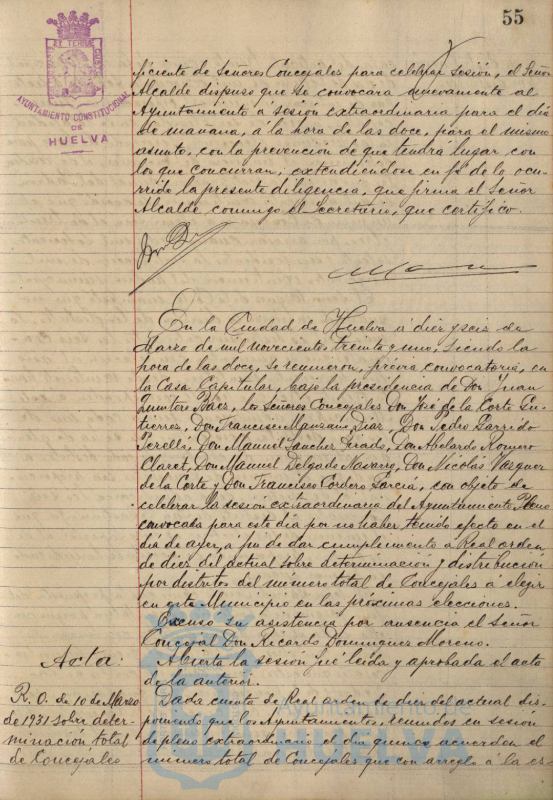 55
AYUNTAMIENTO CONSTITUCIONAL
DE
HUELVA
ficiente de Señores Concejales para celebrar sesión, el Señor
Alcalde dispuso que se convocara nuevamente al
Ayuntamiento á sesión extraordinaria para el día
de mañana, a la hora de las doce, para el mismo
asunto, con la prevención de que tendrá lugar con
los que concurran, extendiéndose en fé de lo ocu-
rrido la presente diligencia, que firma el Señor
Alcalde conmigo el Secretario, que certifico.
En la Ciudad de Huelva á diez y seis de
Marzo de mil novecientos treinta y uno, siendo la
hora de las doce, se reunieron, prévia convocatoria, en
la Casa Capitular, bajo la presidencia de Don Juan
Quintero Báez, los Señores Concejales Don José de la Corte Gu-
tierrez, Don Francisco Manzano Díaz, Don Pedro Garrido
Perelló, Don Manuel Sanchez Tirado, Don Abelardo Romero
Claret, Don Manuel Delgado Navarro, Don Nicolás Vazquez
de la Corte y Don Francisco Cordero García, con objeto de
celebrar la sesión extraordinaria del Ayuntamiento Pleno
convocada para este día por no haber tenido efecto en el
día de ayer, a fin de dar cumplimiento á Real orden
de diez del actual sobre determinación y distribución
por distritos del número total de Concejales á elegir
en este Municipio en las próximas elecciones.
Excusó su asistencia por ausencia el Señor
Concejal Don Ricardo Dominguez Moreno.
Acta:
Abierta la sesión fué leida y aprobada el acta
de la anterior.
R. O. de 10 de Marzo
de 1931 sobre deter-
minación total
de Concejales
Dada cuenta de Real orden de diez del actual dis-
poniendo que los Ayuntamientos, reunidos en sesión
de pleno extraordinario el día quince acuerden el
número total de Concejales que con arreglo á la es-
Ayuntamiento de
HUELVA